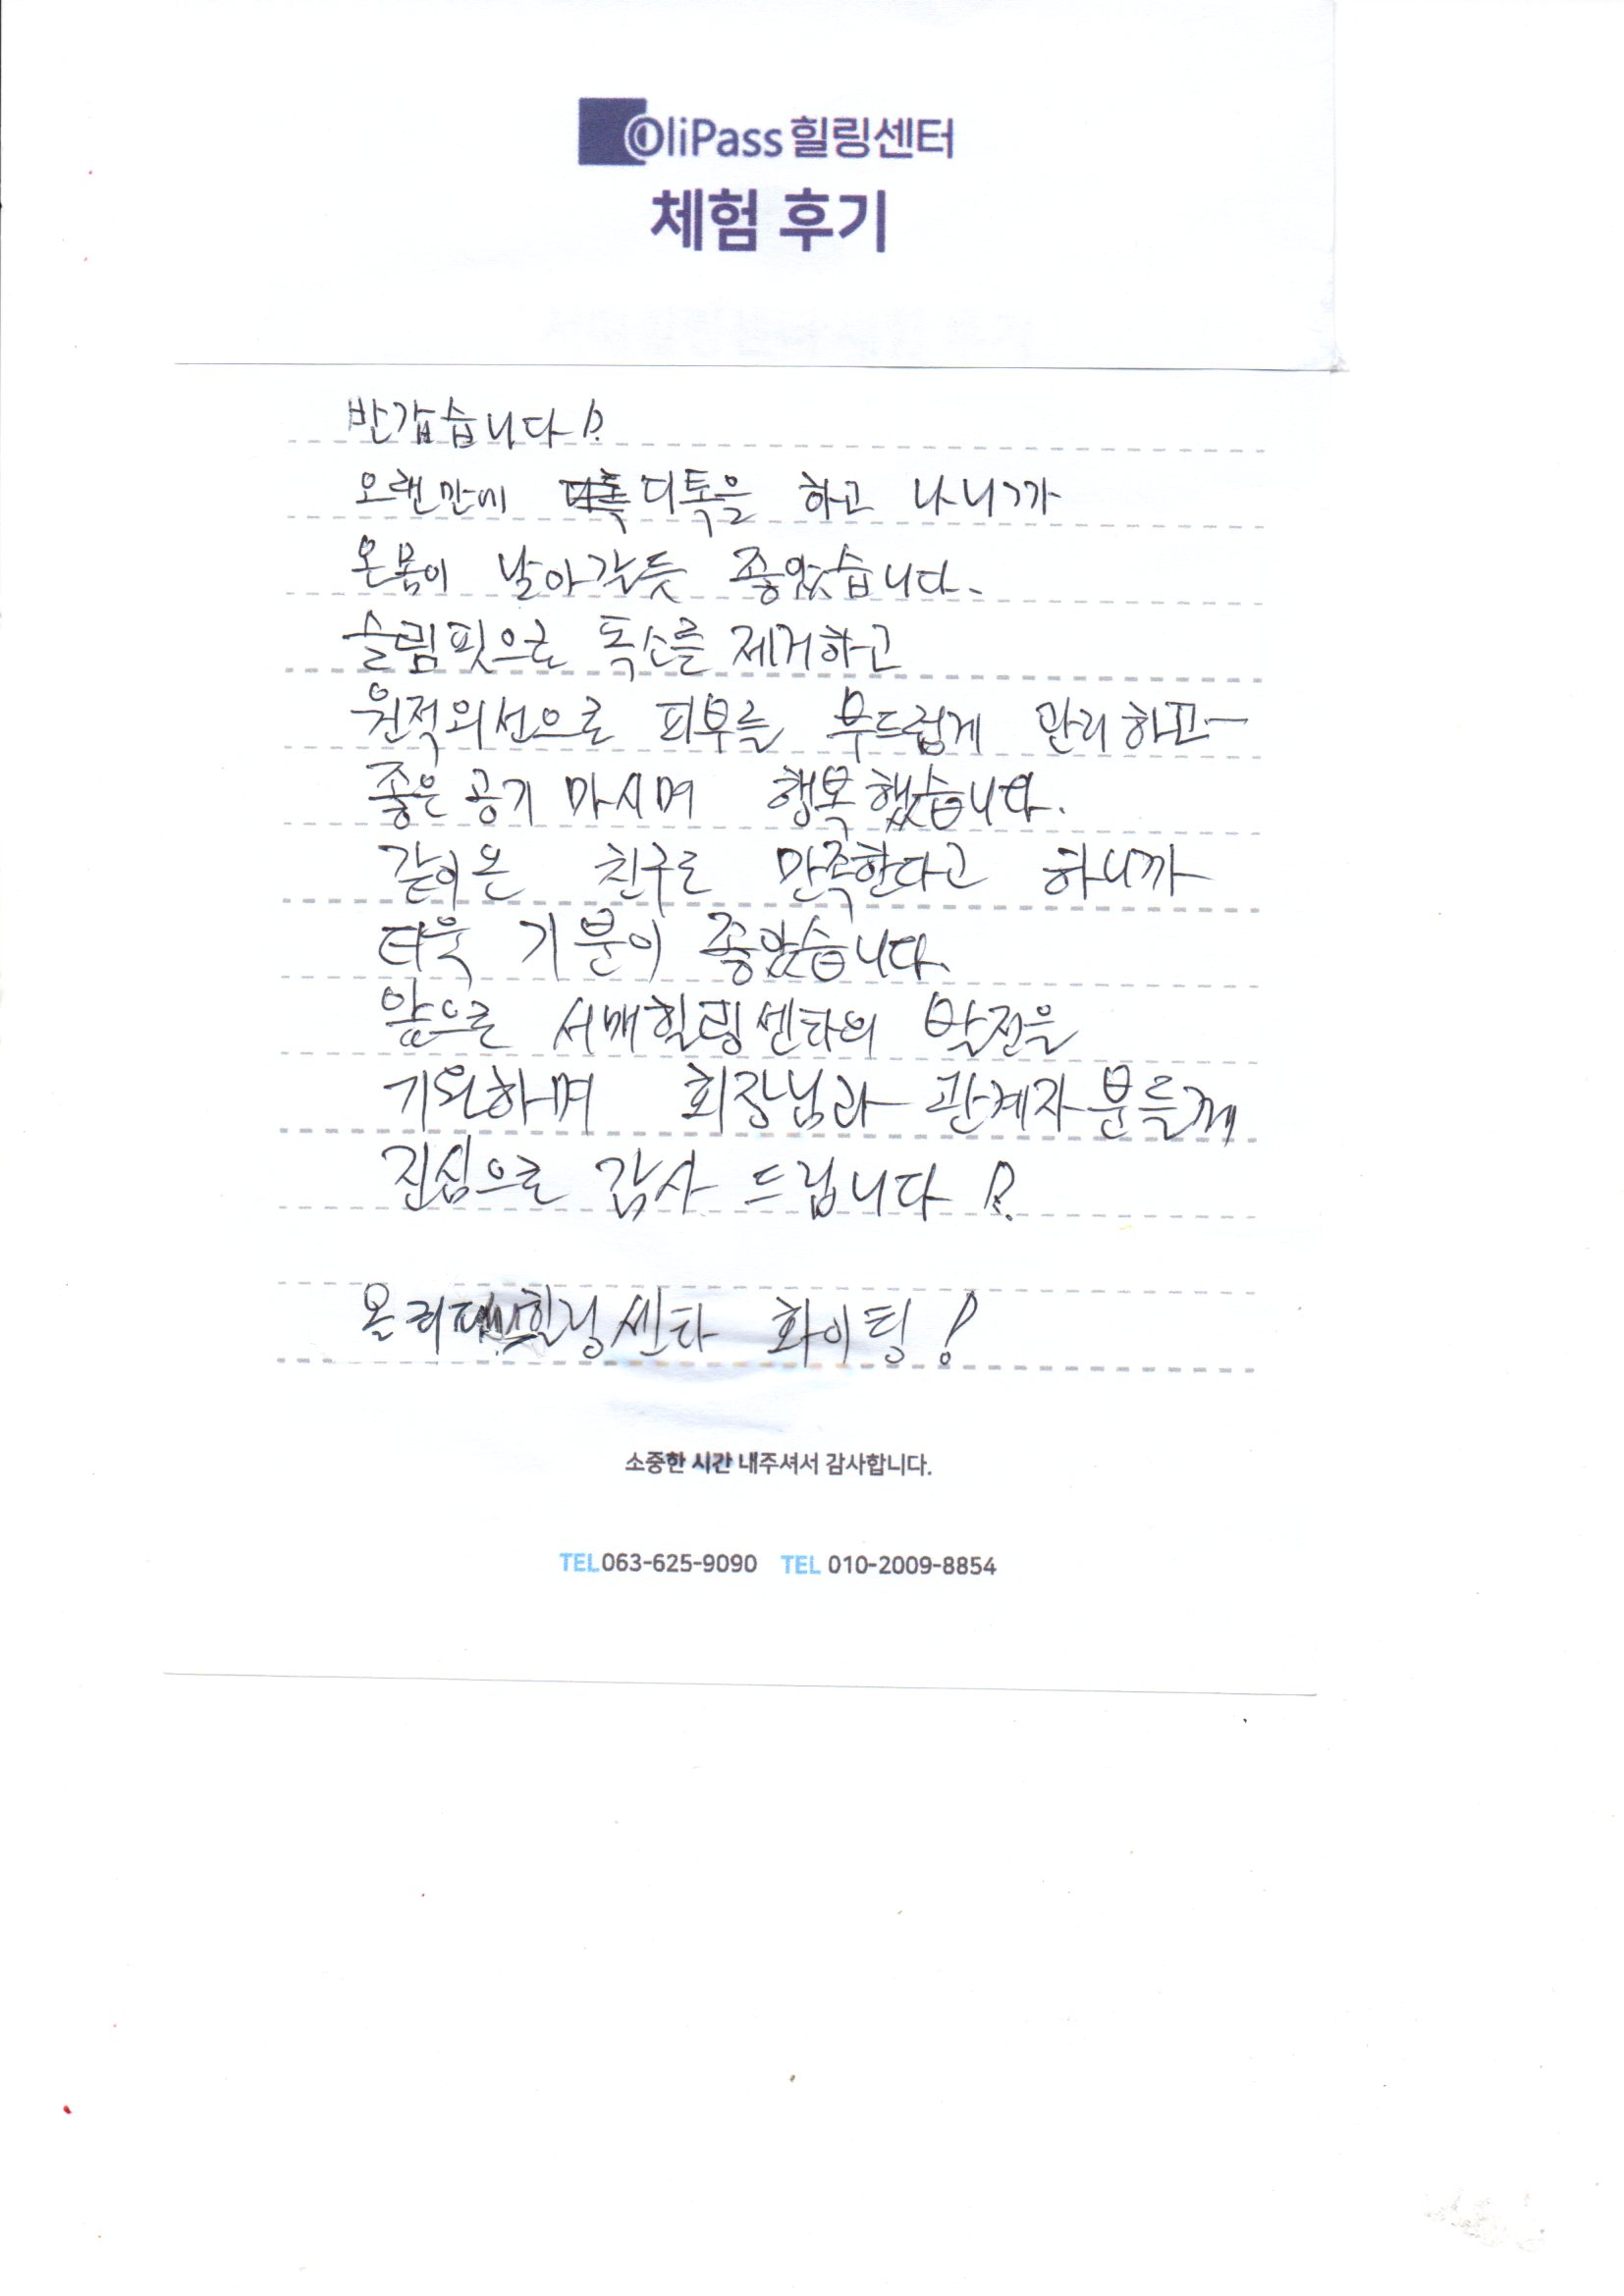 OliPass 힐링센터
체험 후기
반갑습니다!
오랜만에 디톡을 하고 나니까
온몸이 날아갈듯 좋았습니다.
슬림핏으로 독소를 제거하고
원적외선으로 피부를 부드럽게 관리하고
좋은공기 마시며 행복했습니다.
같이온 친구도 만족한다고 하니까
더욱 기분이 좋았습니다.
앞으로 힐링센타의 발전을
기원하며 회장님과 관계자분들께
진심으로 감사 드립니다!
올리패스힐링센타 화이팅!
소중한 시간 내주셔서 감사합니다.
TEL 063-625-9090 TEL 010-2009-8854